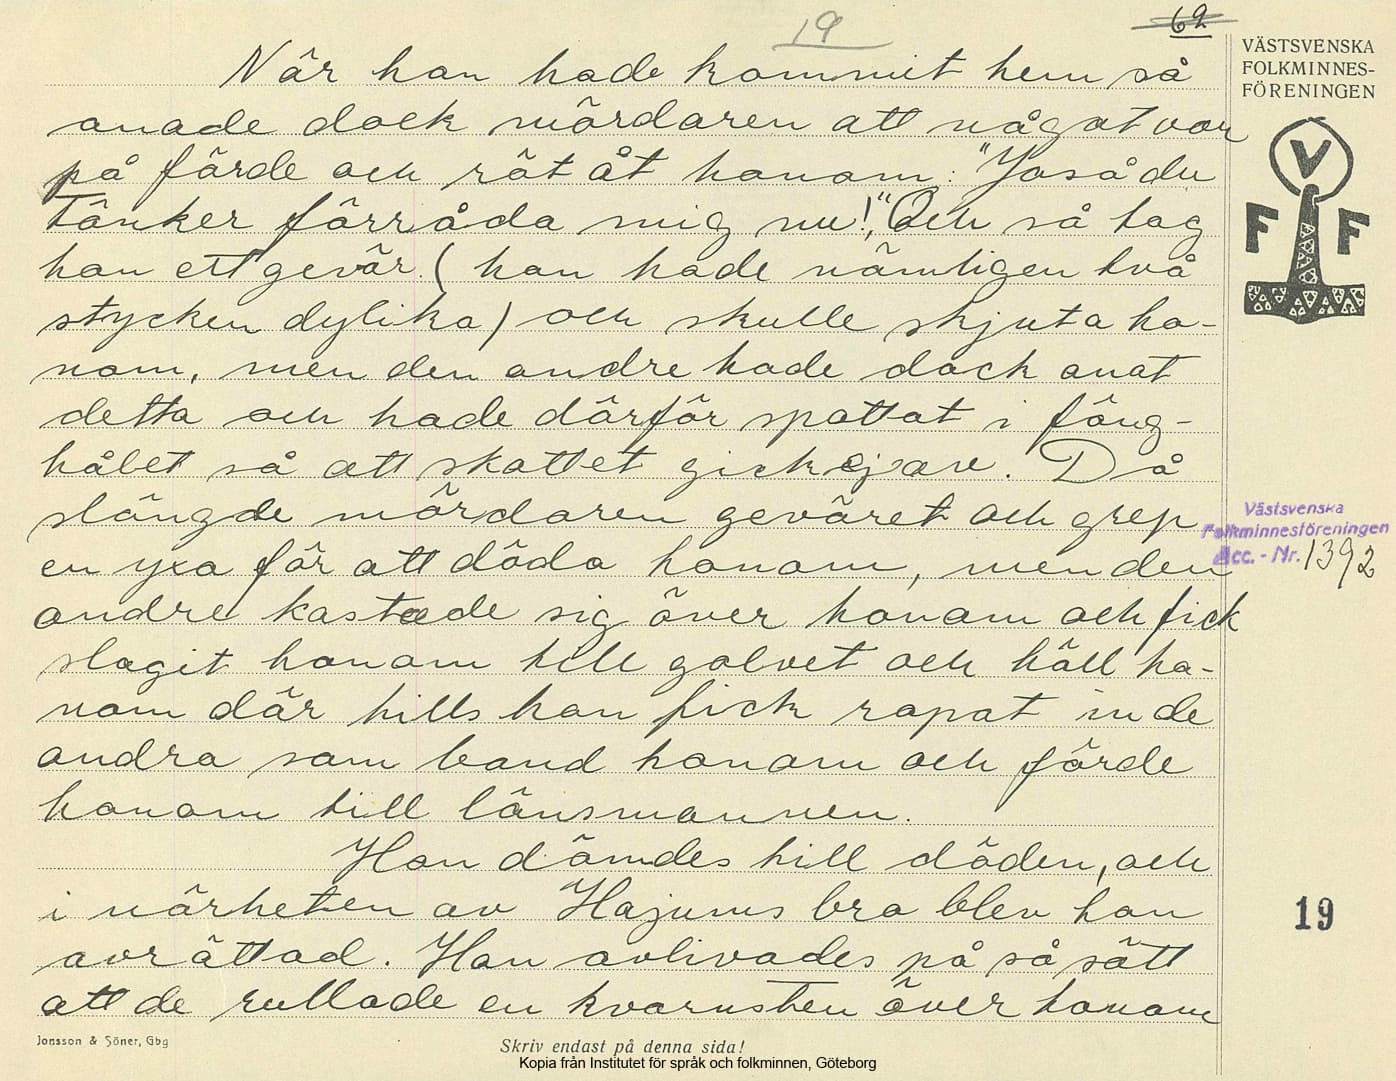 19
62
VÄSTSVENSKA
FOLKMINNES-
FÖRENINGEN
När han hade kommit hem så
anade dock mördaren att något var
på färde och röt åt honom: "Jaså du
tänker förråda mig nu!", Och så tog
han ett gevär. (han hade nämligen två
stycken dylika) och skulle skjuta ho-
nom, men den andre hade dock anat
detta och hade därför spottat i fäng-
hålet så att skottet gick ej av. Då
slängde mördaren geväret och grep
en yxa för att döda honom, men den
andre kastade sig över honom och fick
slagit honom till golvet och höll ho-
nom där tills han fick ropat in de
andra som band honom och förde
honom till länsmannen.
Han dömdes till döden, och
i närheten av Hajums bro blev han
avrättad. Han avlivades på så sätt
att de rullade en kvarnsten över honom
V
F F
Västsvenska
Folkminnesföreningen
Acc. - Nr. 1392
19
Jonsson & Söner, Gbg
Skriv endast på denna sida!
Kopia från Institutet för språk och folkminnen, Göteborg